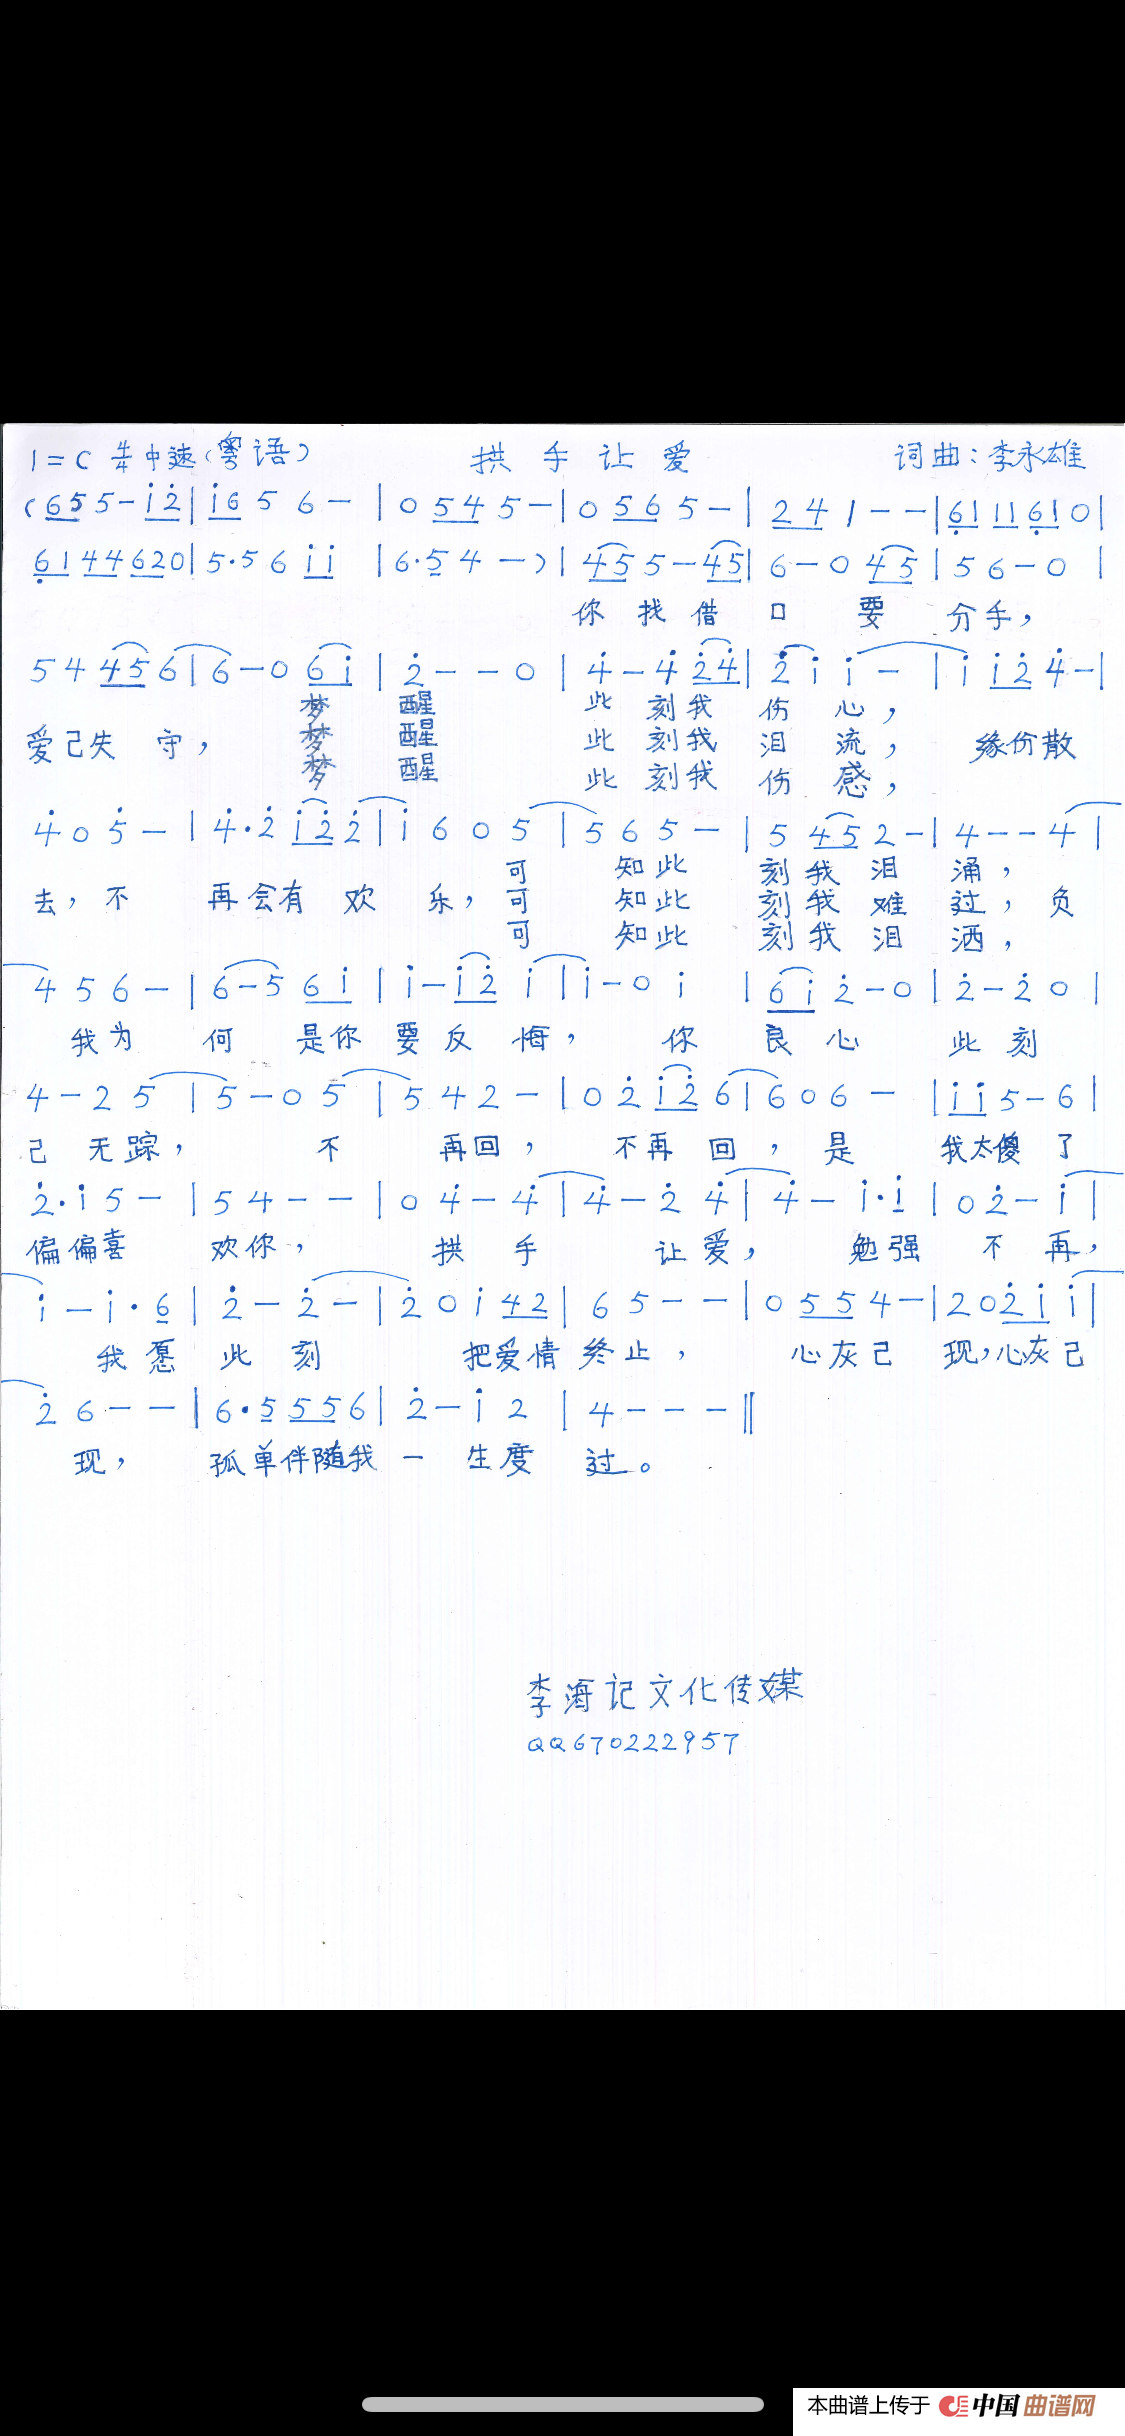 1=C 4/4 中速(粤语) 拱手让爱 词曲:李永雄
(6 5 5 - i̇ 2̇ | i̇ 6 5 6 - | 0 5 4 5 - | 0 5 6 5 - | 2 4 1 - - | 6̣ 1 1 1 6̣ 1 0 |
6̣ 1 4 4 6 2 0 | 5·5 6 i̇ i̇ | 6·5 4 - ) | 4 5 5 - 4 5 | 6 - 0 4 5 | 5 6 - 0 |
你找借口要分手,
5 4 4 5 6 | 6 - 0 6 i̇ | 2̇ - - 0 | 4̇ - 4̇ 2̇ 4̇ | 2̇ i̇ i̇ - | i̇ i̇ 2̇ 4̇ - |
梦醒 此刻我伤心,
爱己失守, 梦醒 此刻我泪流, 缘份散
梦醒 此刻我伤感,
4̇ 0 5̇ - | 4̇·2̇ i̇ 2̇ 2̇ | i̇ 6 0 5 | 5 6 5 - | 5 4 5 2 - | 4 - - 4 |
可知此刻我泪涌,
去,不再会有欢乐,可知此刻我难过,负
可知此刻我泪洒,
4 5 6 - | 6 - 5 6 i̇ | i̇ - i̇ 2̇ i | i̇ - 0 i | 6 i̇ 2̇ - 0 | 2̇ - 2̇ 0 |
我为何是你要反悔, 你良心此刻
4 - 2 5 | 5 - 0 5 | 5 4 2 - | 0 2̇ i̇ 2̇ 6 | 6 0 6 - | i̇ i̇ 5 - 6 |
己无踪, 不再回, 不再回,是我太傻了
2̇·i̇ 5 - | 5 4 - - | 0 4̇ - 4̇ | 4̇ - 2̇ 4̇ | 4̇ - i̇·i̇ | 0 2̇ - i̇ |
偏偏喜欢你, 拱手让爱, 勉强不再,
i̇ - i̇·6 | 2̇ - 2̇ - | 2̇ 0 i̇ 4 2 | 6 5 - - | 0 5 5 4 - | 2 0 2̇ i̇ i̇ |
我愿此刻 把爱情终止, 心灰己现,心灰己
2̇ 6 - - | 6·5 5 5 6 | 2̇ - i̇ 2 | 4 - - - ‖
现, 孤单伴随我一生度过。
李海记文化传媒
QQ670222957
本曲谱上传于 中国曲谱网